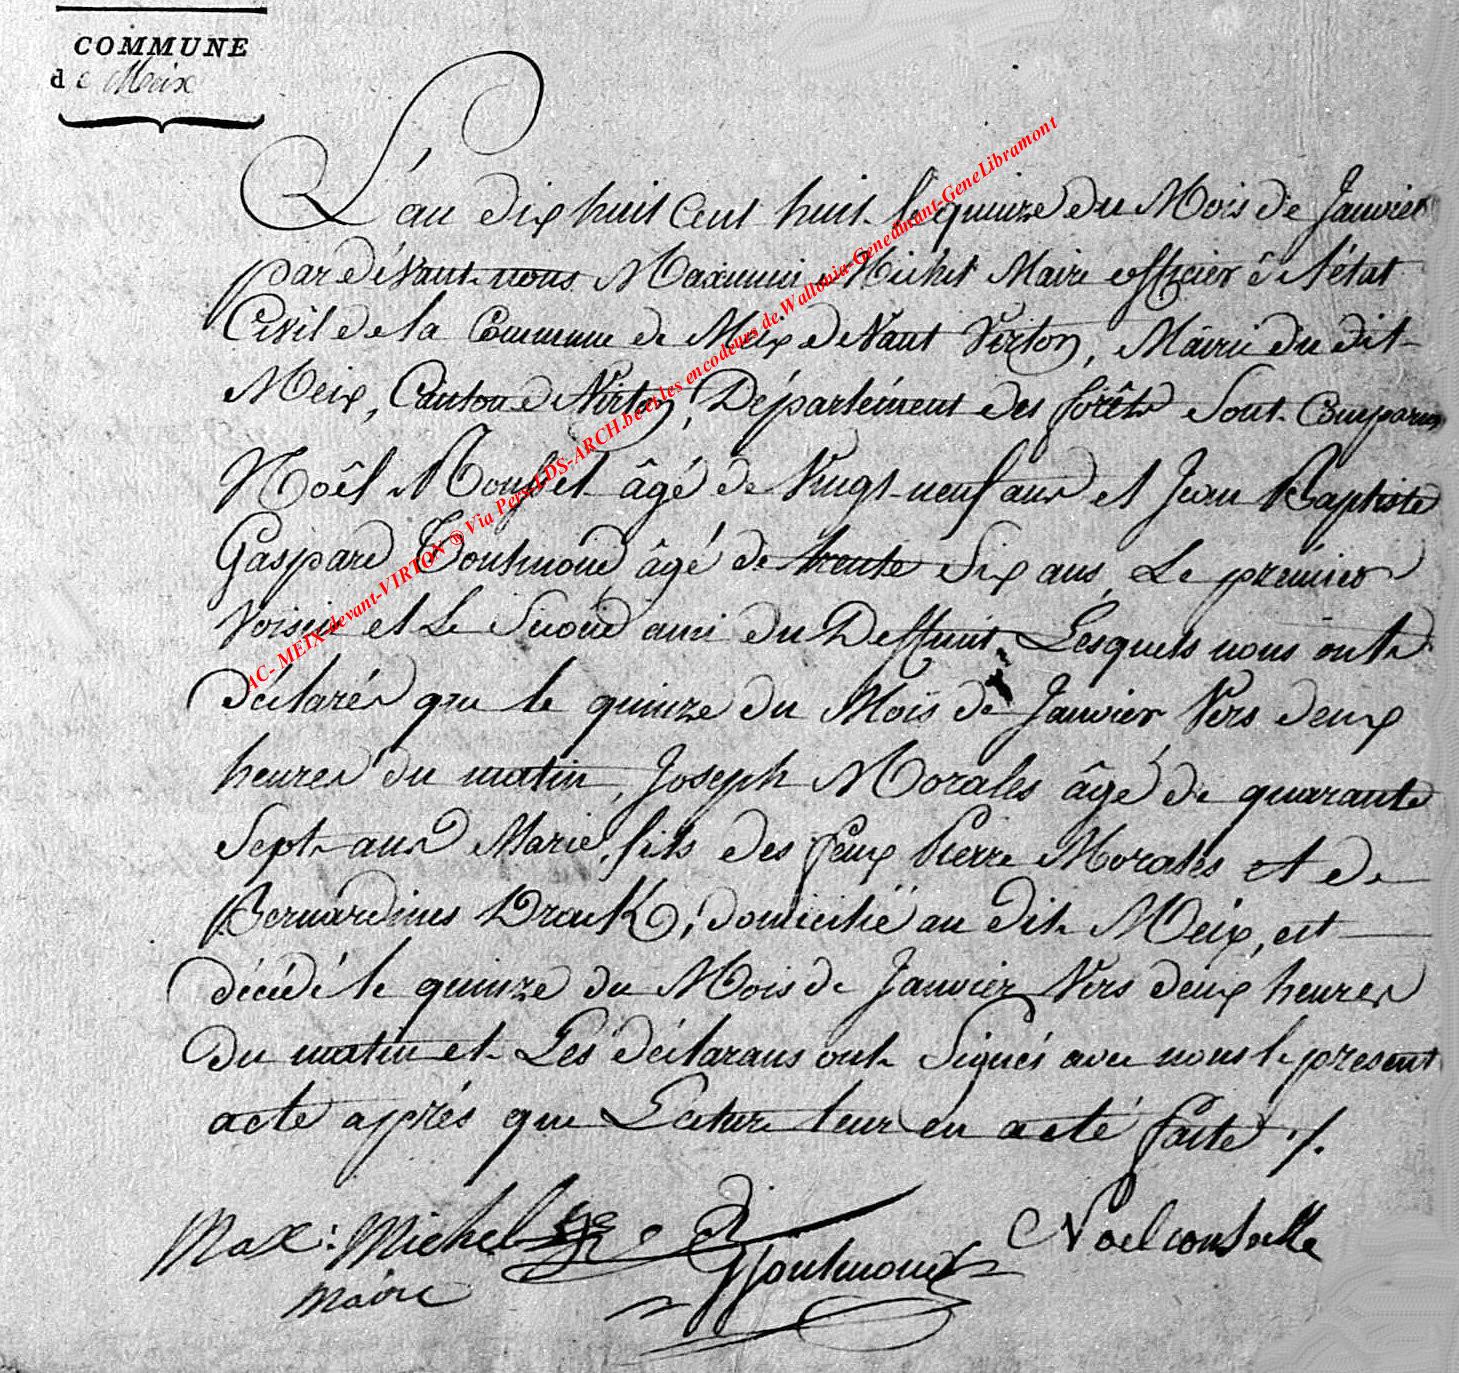 COMMUNE
de Meix
L'an dix huit Cent huit le quinze du Mois de Janvier
par dévant nous Maximin Michel Maire officier de l'état
Civil de la Commune de Meix devant Virton, Mairie du dit
Meix, Canton de Virton, Département des forêts Sont Comparus
Noêl âgé de Vingt-neuf ans et Jean Baptiste
Gaspard Toutmond âgé de trente Six ans, Le prémier
Voisin et Le Second ami du Deffunt, Lesquels nous ont
déclarés que le quinze du Mois de Janvier Vers deux
heures du matin, Joseph Morales âgé de quarante
Sept ans Marié, fils des feux Pierre Morales et de
Bernardines Drouk, domicilié au dit Meix, est
décédé le quinze du Mois de Janvier Vers deux heures
du matin et Les déclarans ont Signés avec nous le present
acte après que Lecture leur en a eté faite ./.
Max: Michel
Maire
Toutmond
Noel
AC- MEIX-devant-VIRTON ® Via Pers-LDS-ARCH.be et les encodeurs de Wallonia-Geneamant-GeneLibramont